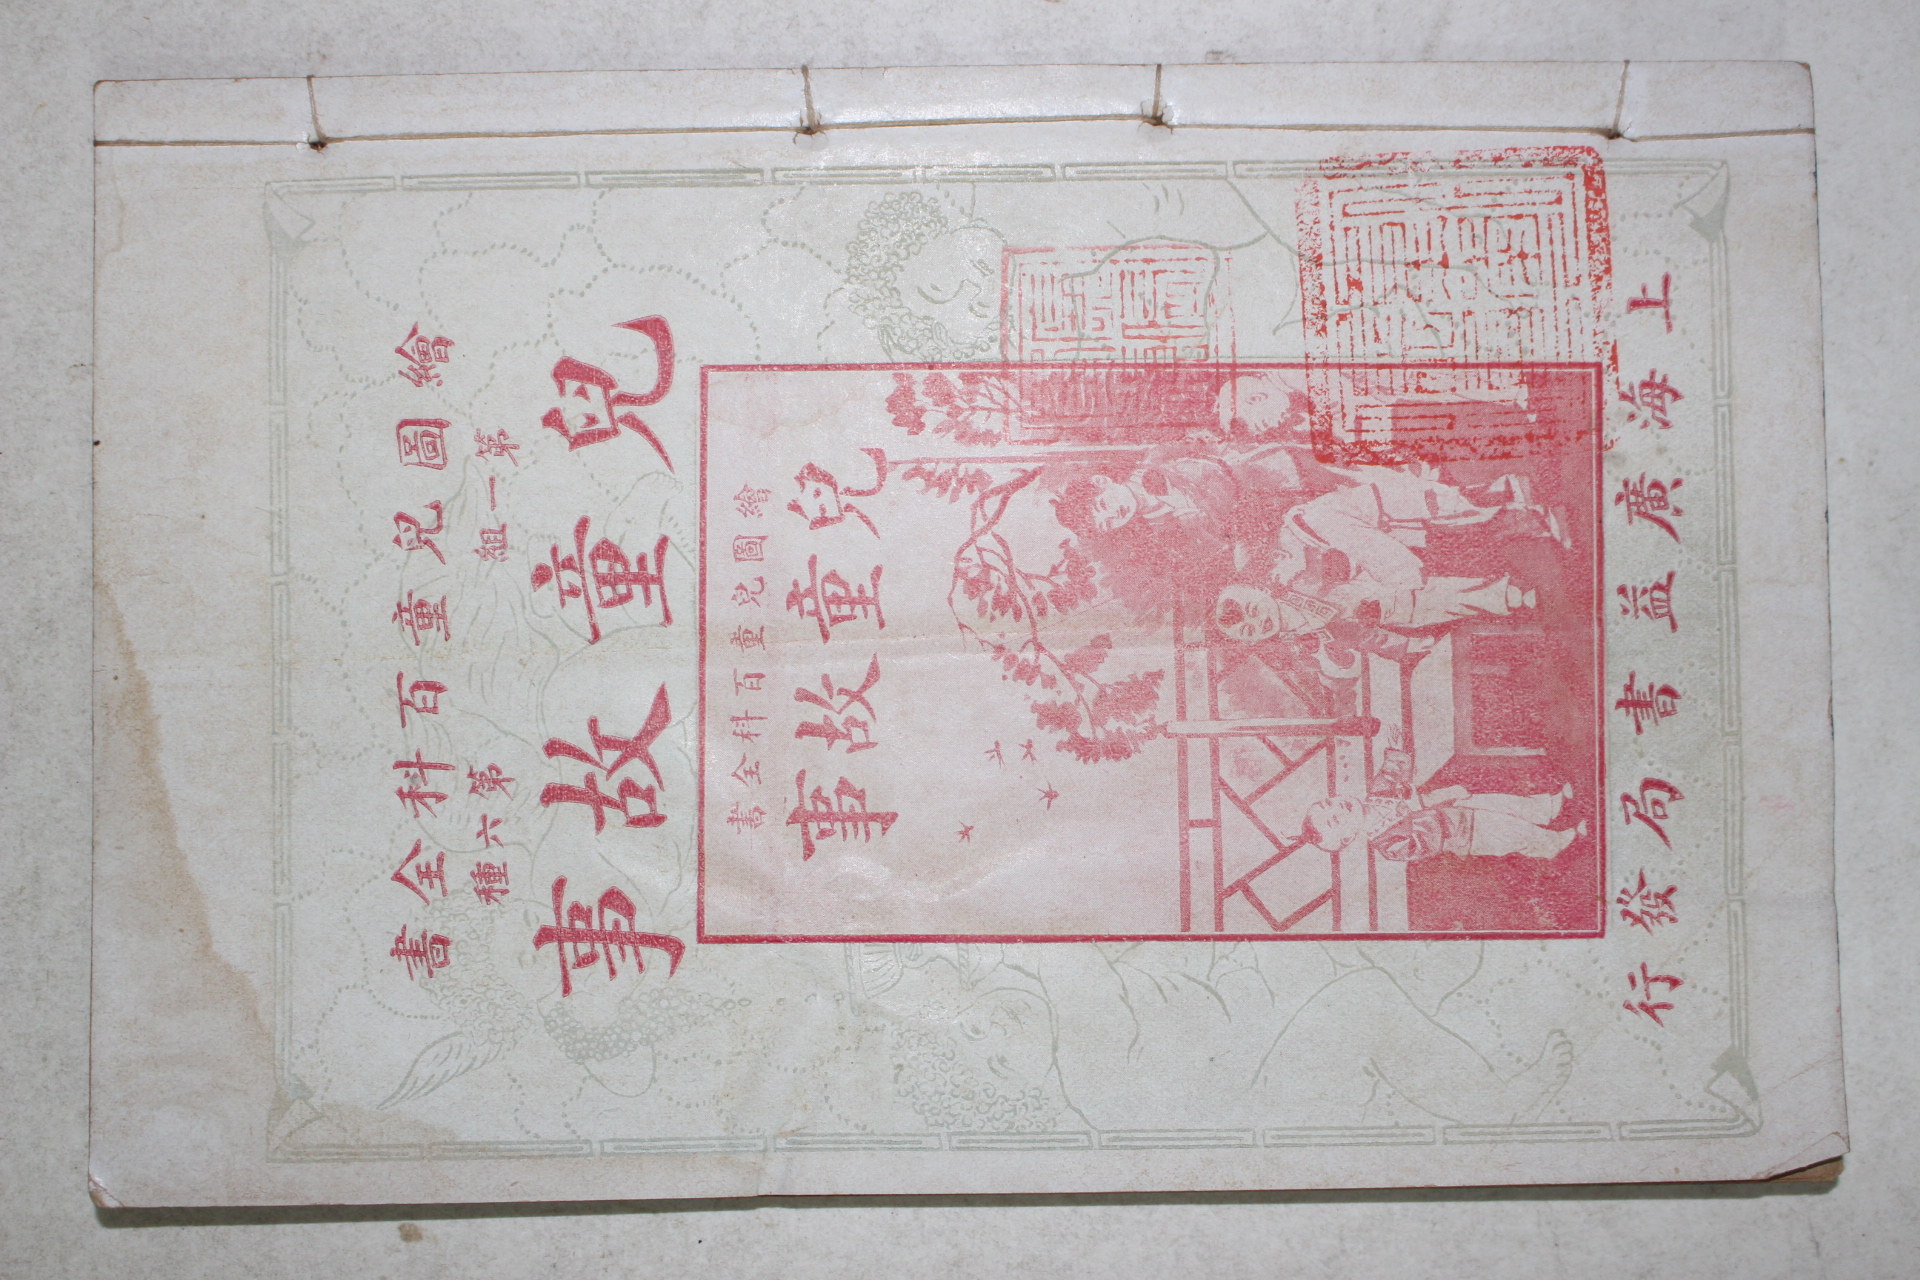 繪圖兒童百科全書
第一組 第六種
兒童故事
繪圖兒童百科全書
兒童故事
上海廣益書局發行